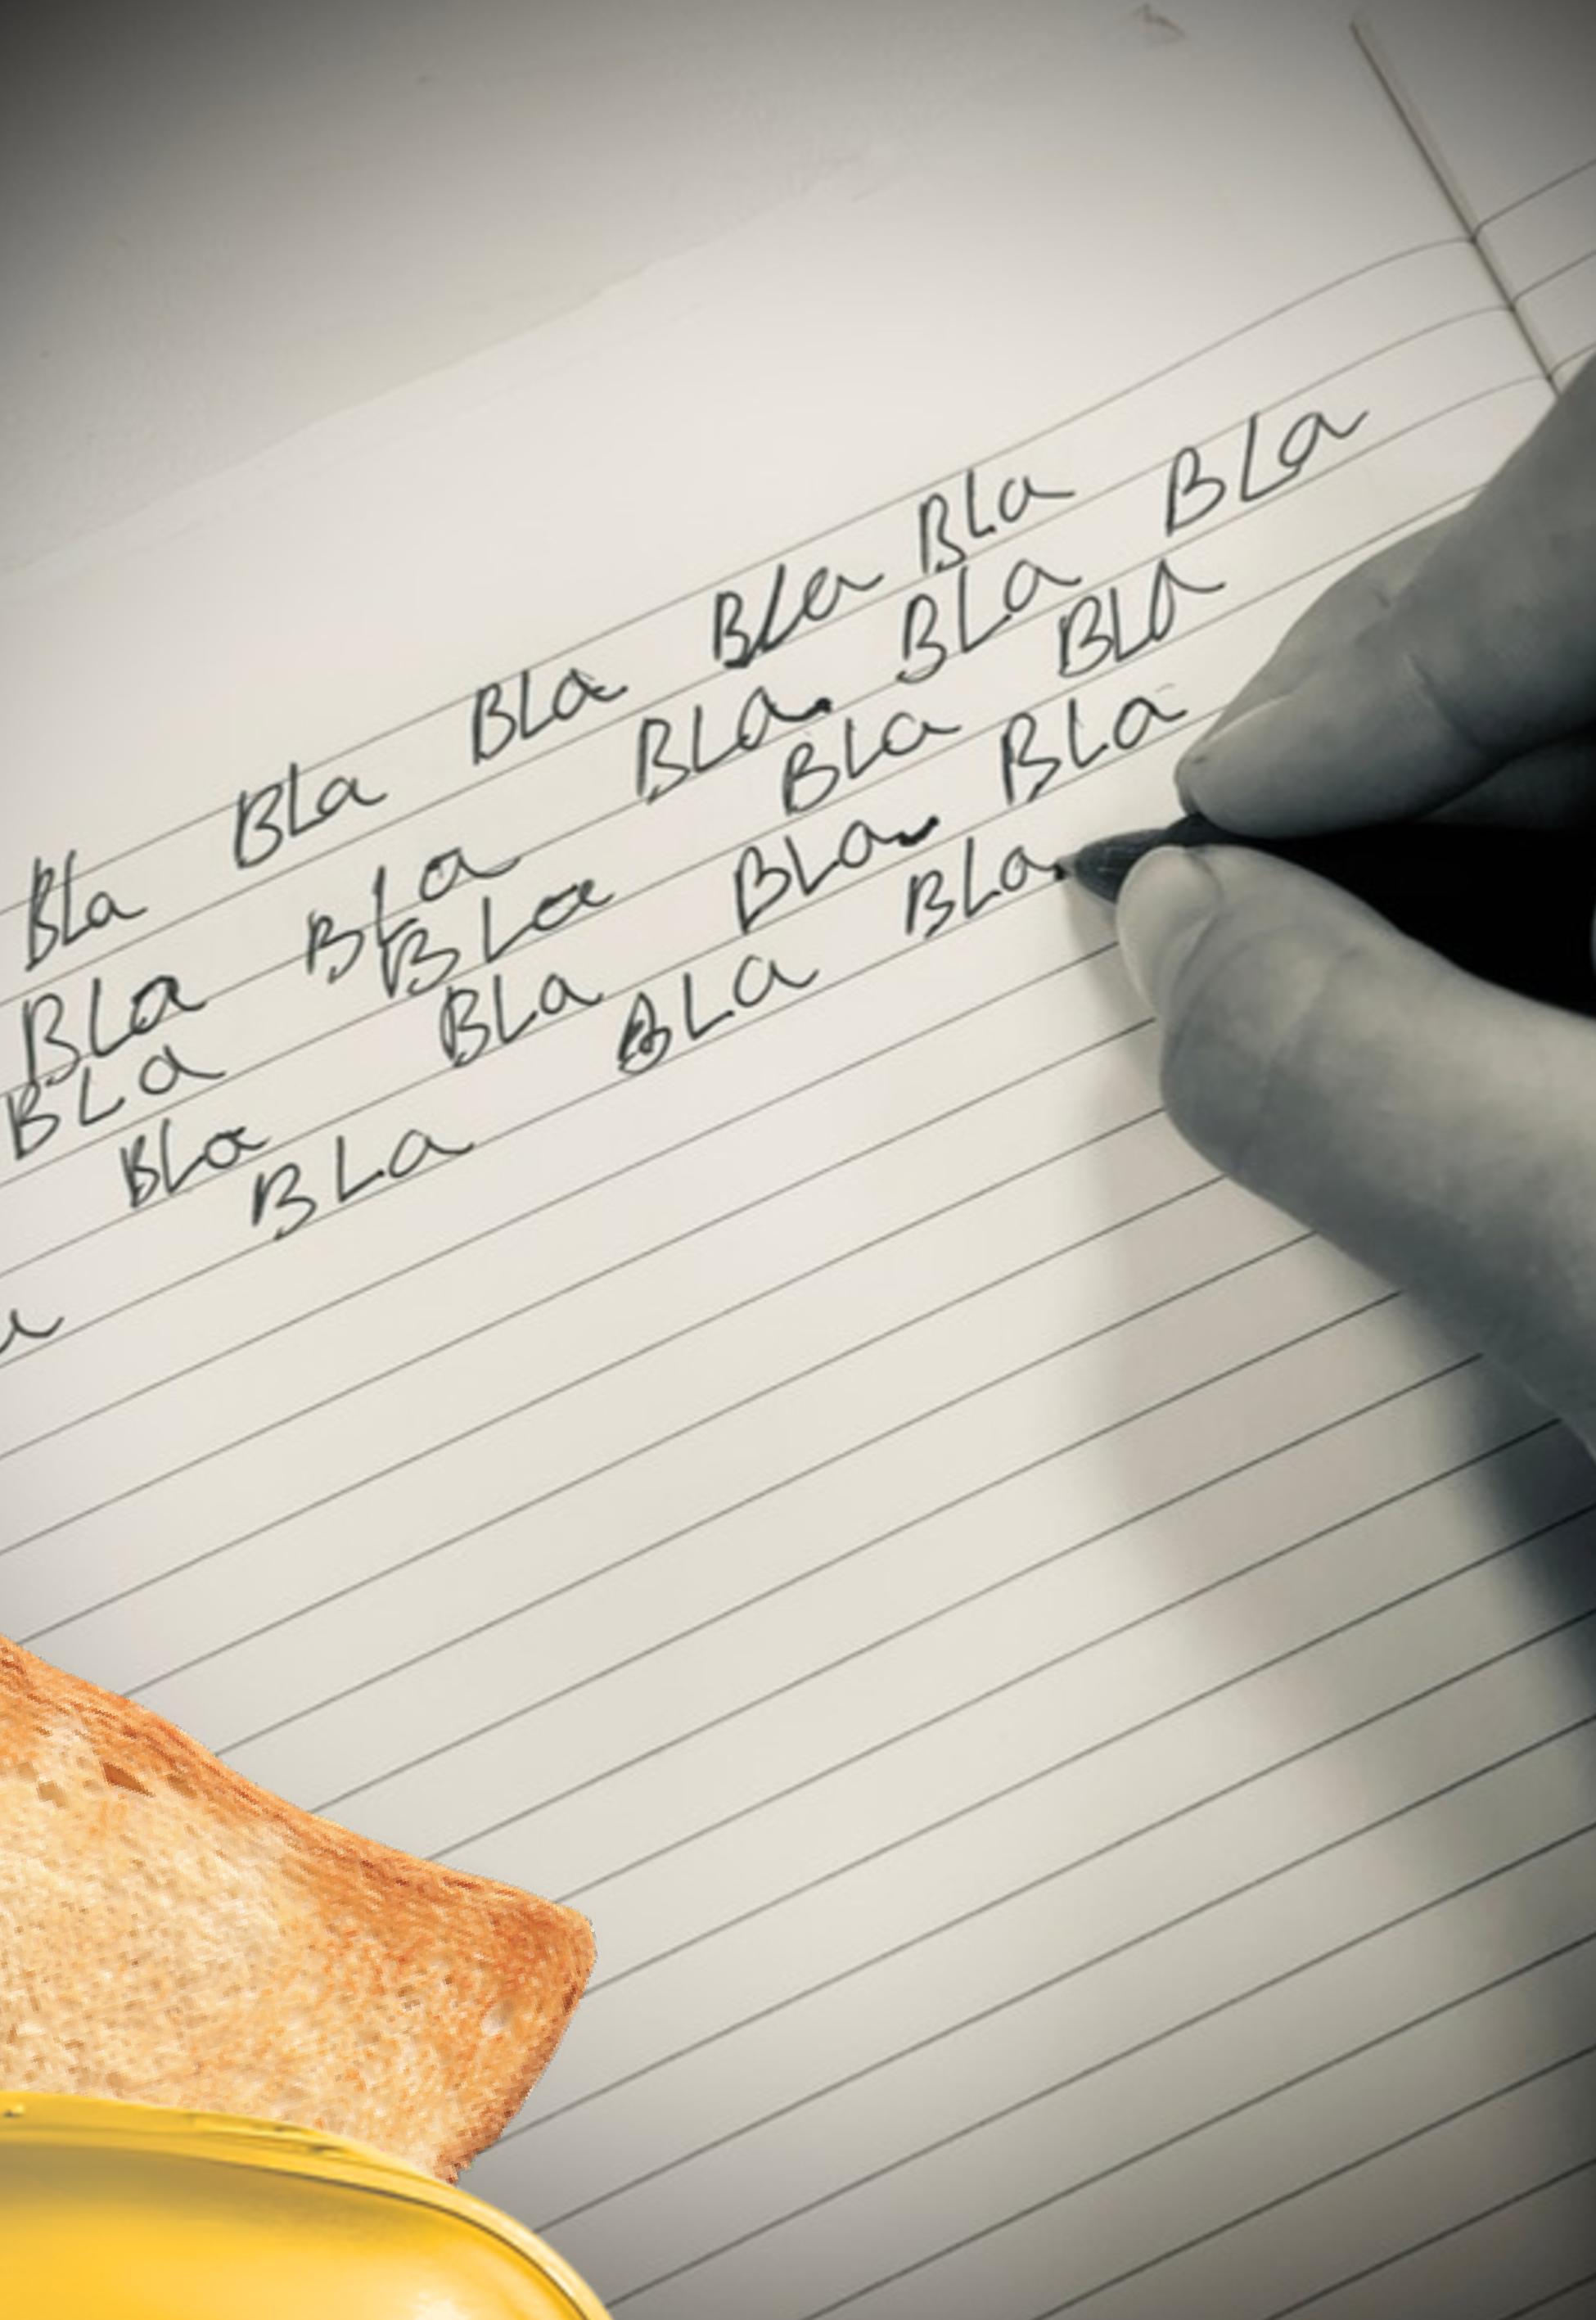 Bla Bla BLa Bla BLa
BLa Bla BLa. BLa BLa
BLa BLa Bla BLa
BLa BLa BLa BLa
BLa BLa BLa.